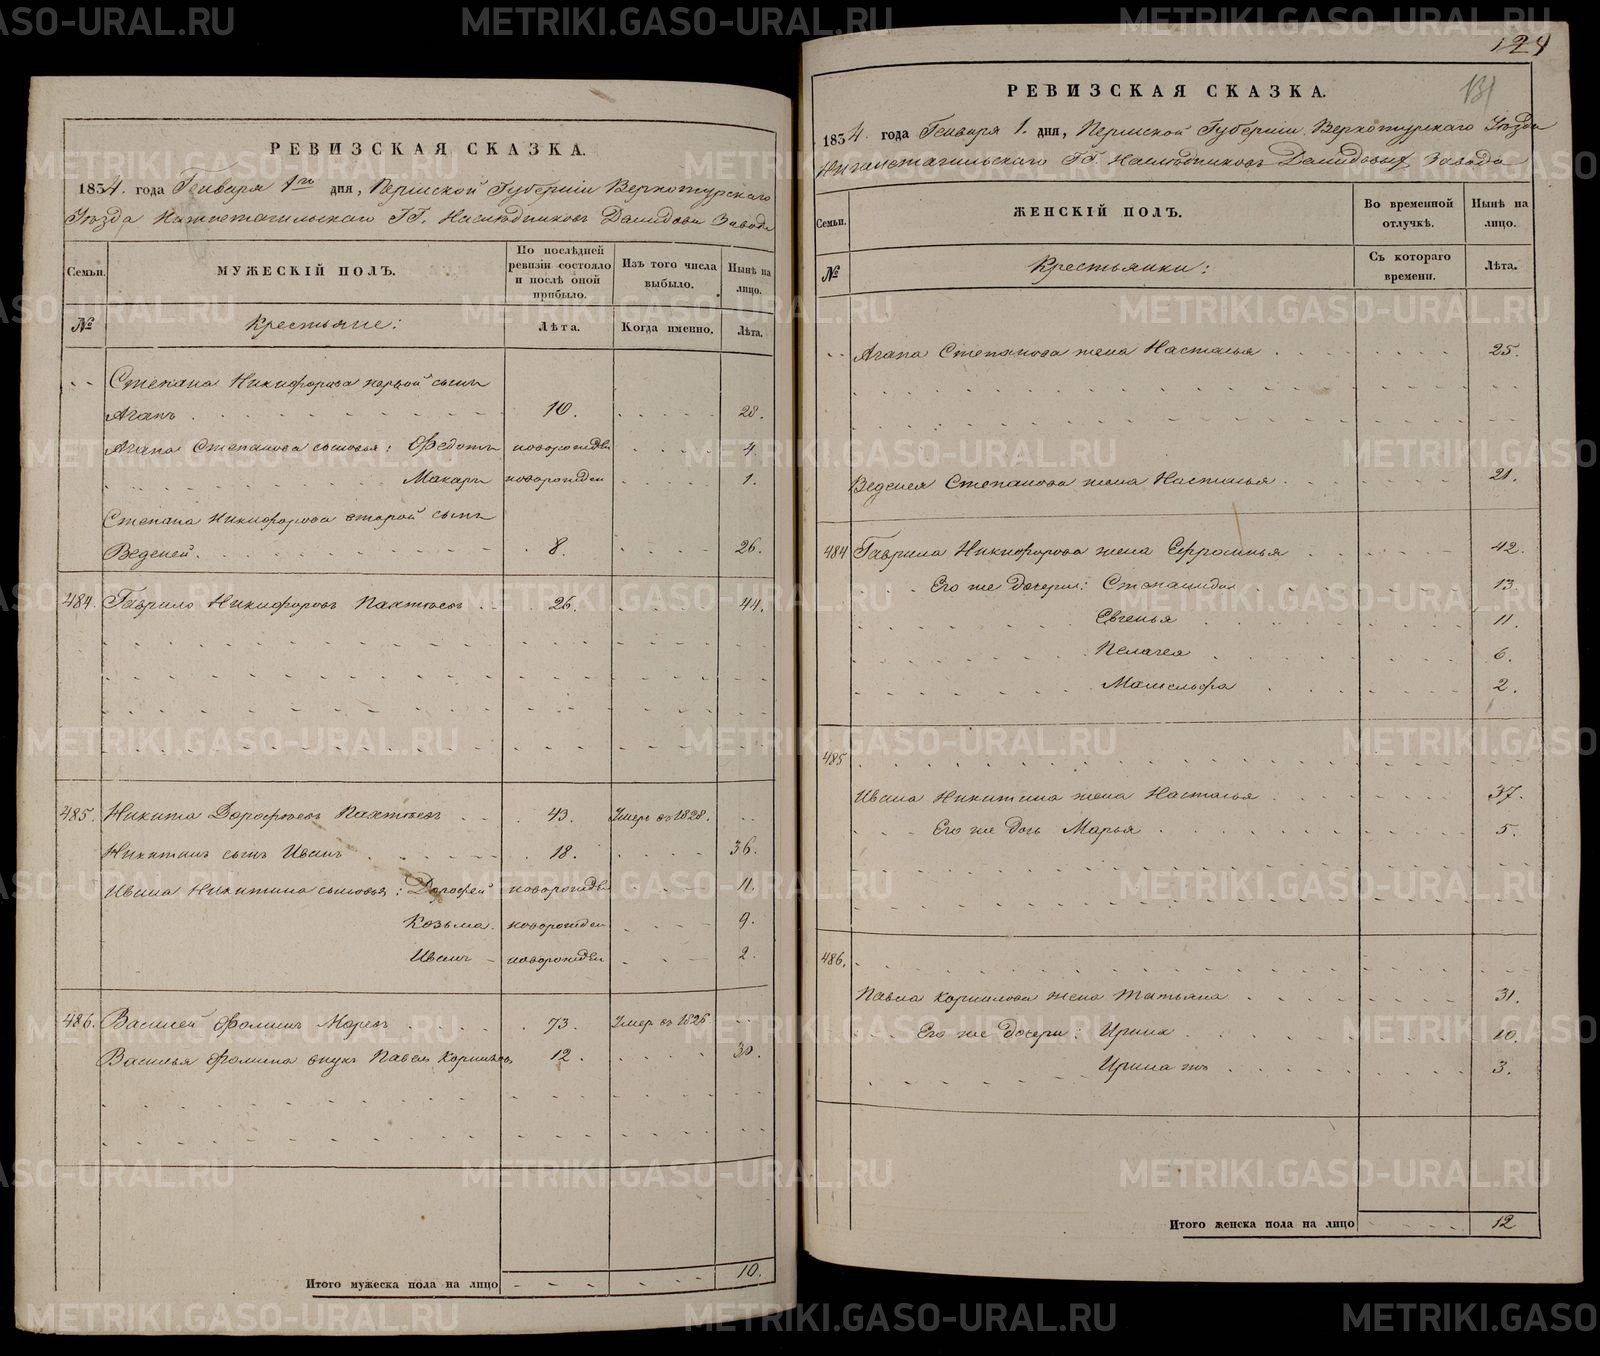 РЕВИЗСКАЯ СКАЗКА.
1834. года Генваря 1го дня, Пермской Губерніи Верхотурскаго
Уѣзда Нижнетагильскаго ГГ. Наслѣдниковъ Демидовых Завода
Семьи.
МУЖЕСКІЙ ПОЛЪ.
По послѣдней ревизіи состояло и послѣ оной прибыло.
Изъ того числа выбыло.
Нынѣ на лицо.
№
Крестьяне:
Лѣта.
Когда именно.
Лѣта.
Степана Никифорова первой сынъ
Агапъ 10. 28.
Агапа Степанова сыновья: Федотъ новорожден 4.
Макаръ новорожден 1.
Степана Никифорова второй сынъ
Веденей. 8. 26.
484. Гаврило Никифоровъ Пахтѣевъ 26. 44.
485. Никита Дорофѣевъ Пахтѣевъ 43. Умеръ въ 1828.
Никитинъ сынъ Иванъ 18. 36.
Ивана Никитина сыновья: Дорофей новорожден 11.
Козьма. новорожден 9.
Иванъ новорожден 2.
486. Василей Фоминъ 73. Умеръ въ 1826
Василья Фомина внукъ Павелъ Корниловъ 12. 30.
Итого мужеска пола на лицо 10.
124
131
РЕВИЗСКАЯ СКАЗКА.
1834. года Генваря 1. дня, Пермской Губерніи Верхотурскаго Уѣзда
Нижнетагильскаго ГГ. Наслѣдниковъ Демидовых Завода
Семьи.
ЖЕНСКІЙ ПОЛЪ.
Во временной отлучкѣ.
Нынѣ на лицо.
№
Крестьянки:
Съ котораго времени.
Лѣта.
Агапа Степанова жена Настасья 25.
Веденея Степанова жена Настасья 21.
484 Гаврила Никифорова жена Ефросинья 42.
Его же дочери: Степанида 13.
Евгенья 11.
Пелагея 6.
Мамельфа 2.
485
Ивана Никитина жена Настасья 37.
Его же дочь Марья 5.
486.
Павла Корнилова жена Татьяна 31.
Его же дочери: Ирина 10.
Ирина жъ 3.
Итого женска пола на лицо 12
METRIKI.GASO-URAL.RU